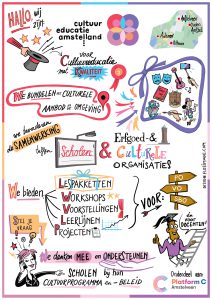 HALLO wij zijn
cultuur
educatie
amstelland
voor
Cultuureducatie
met KWALITEIT
We BUNDELEN het CULTURELE
AANBOD & OMGEVING
we bevorderen
de SAMENWERKING
tussen
SCHOLEN
&
Erfgoed- &
CULTURELE
ORGANISATIES
We bieden
LESPAKKETTEN
WORKSHOPS
VOORSTELLINGEN
LEERLIJNEN
PROJECTEN
VOOR:
PO
VO
SBO
én voor
DOCENTEN!
STEL je
VRAAG!
We denken MEE en ONDERSTEUNEN
SCHOLEN bij hun
CULTUURPROGRAMMA en -BELEID
Onderdeel van
Platform C
Amstelveen